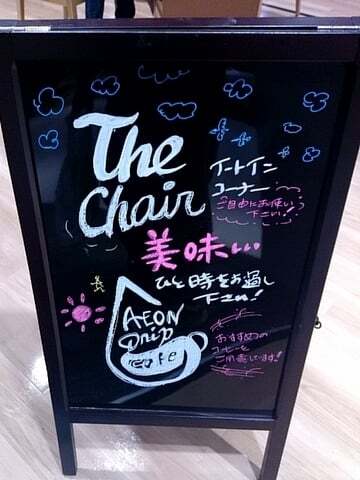 The
Chair
イートイン
コーナー
ご自由にお使い
下さい!
美味しい
ひと時をお過し
下さい!
AEON
Drip
cafe
おすすめの
コーヒーを
ご用意してます!